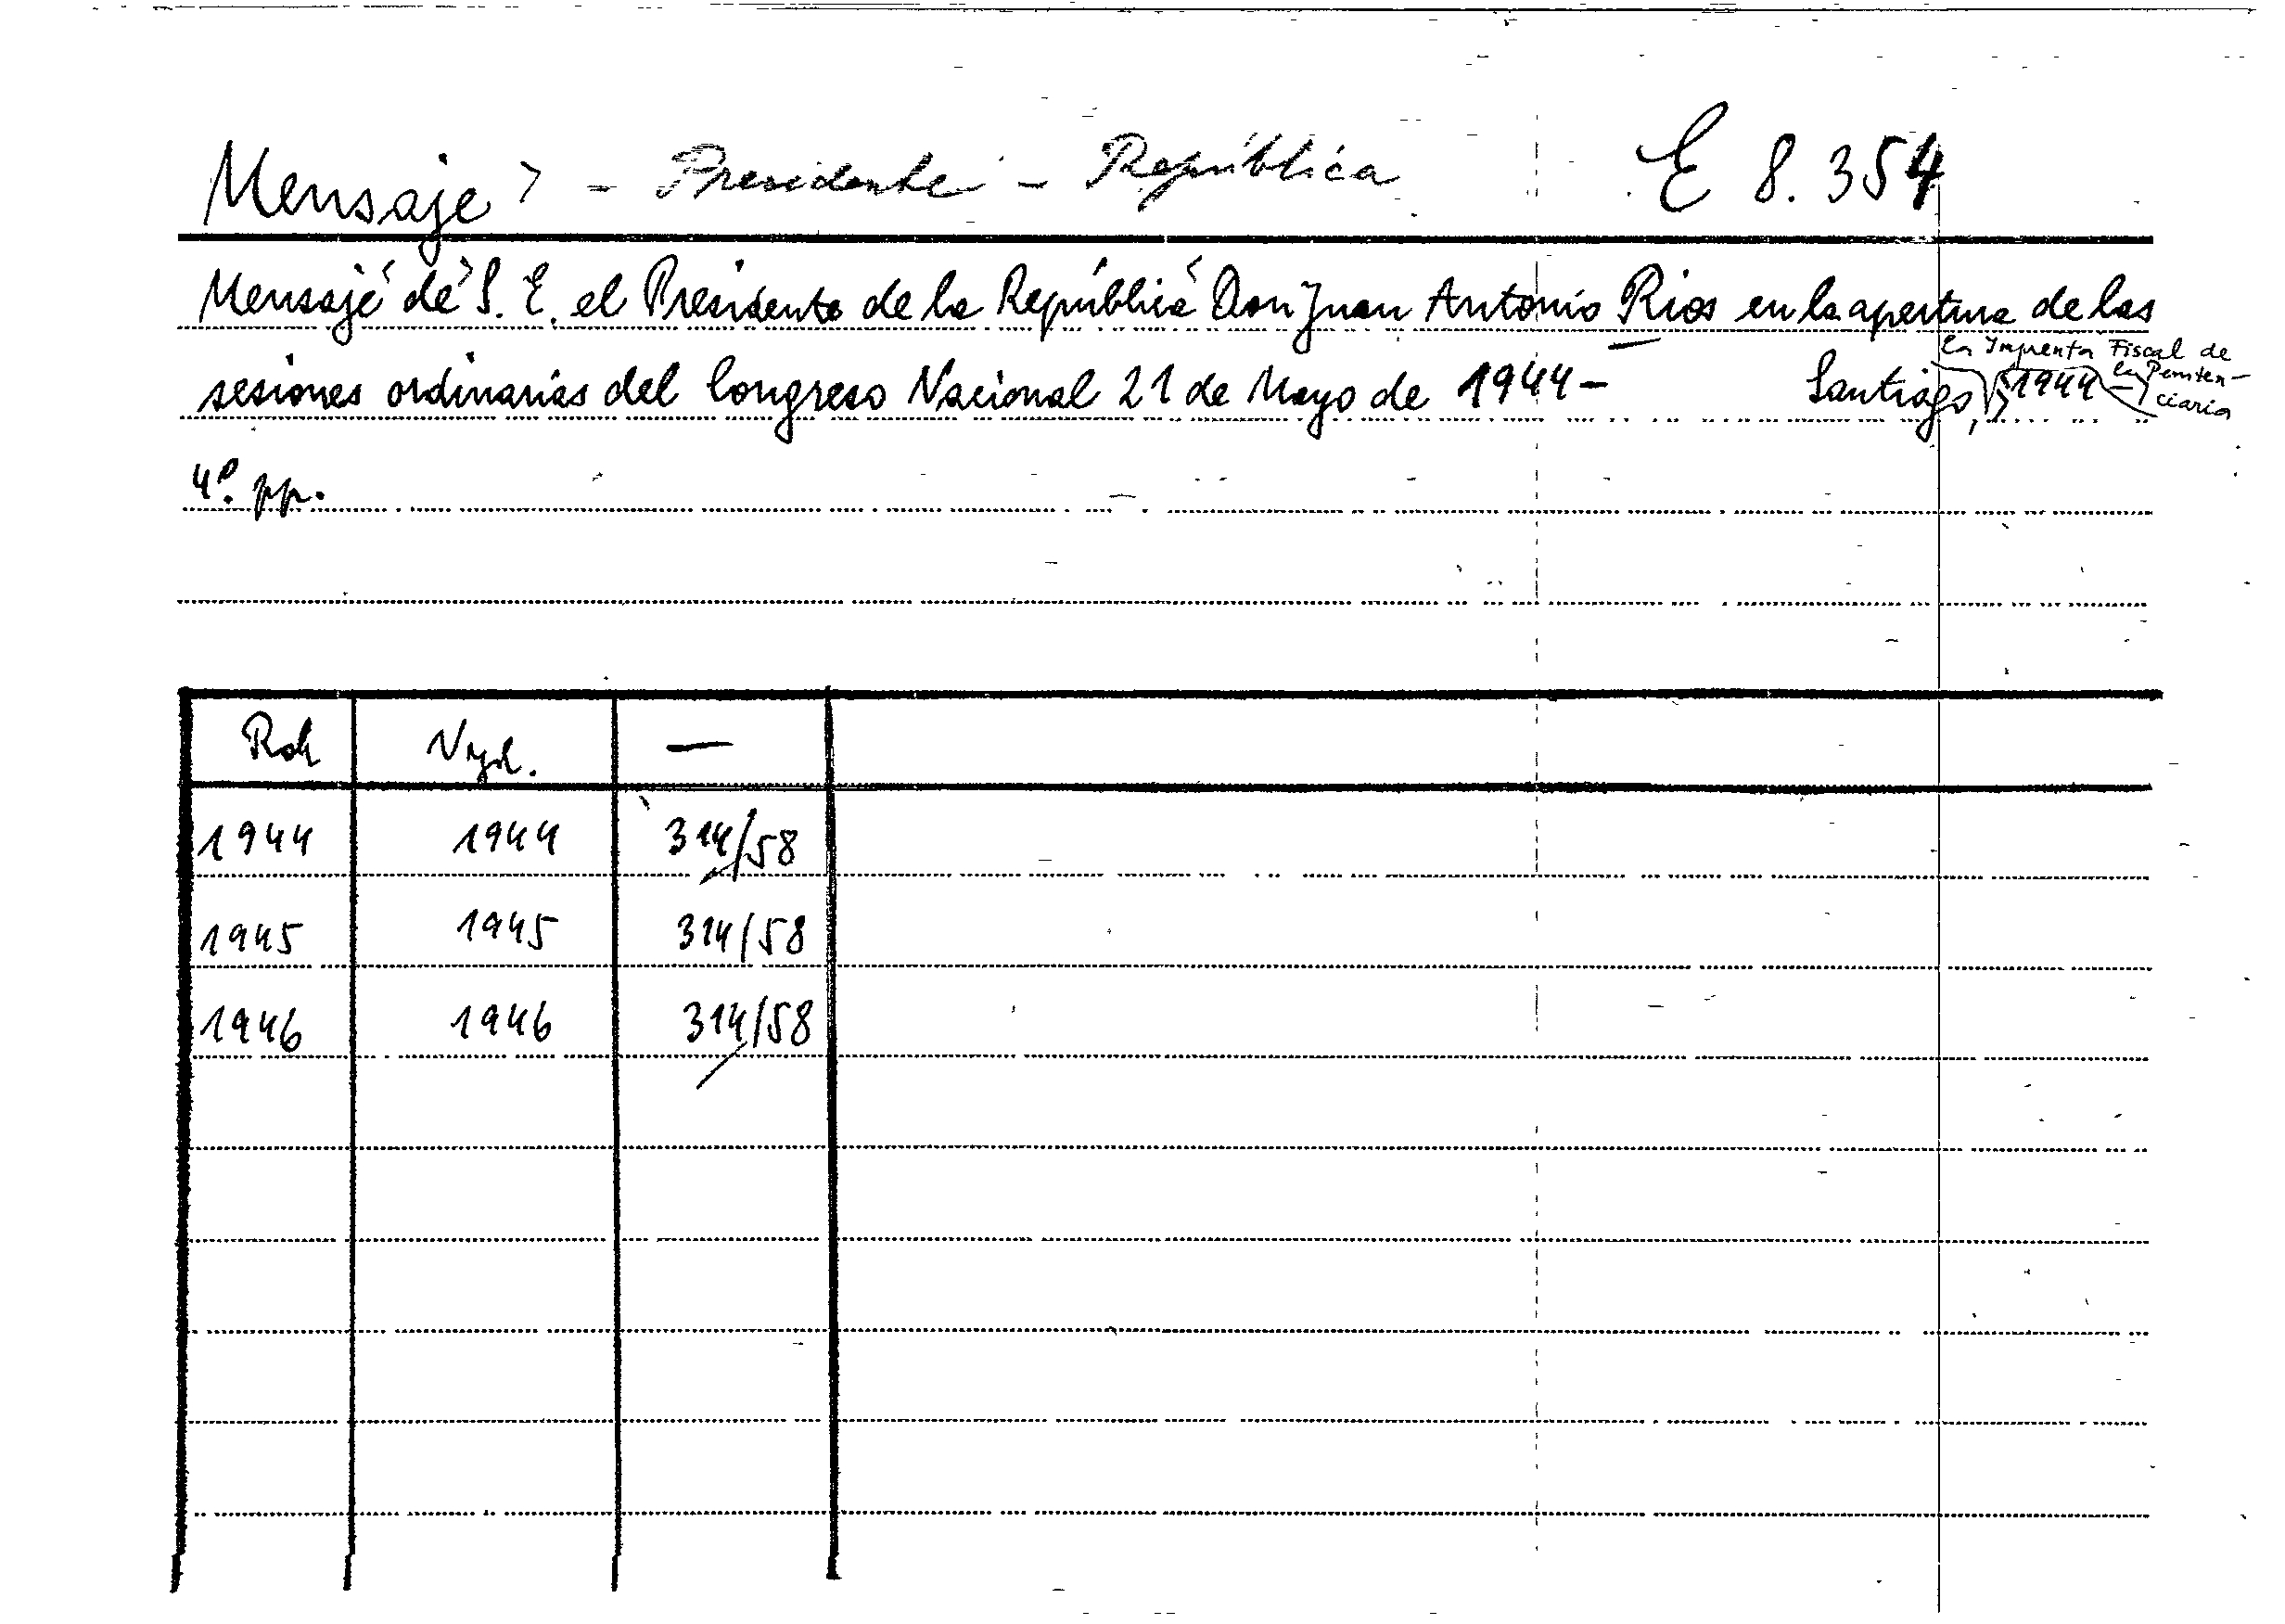 Mensaje - Presidente - República E 8.354
Mensaje de S. E. el Presidente de la República Don Juan Antonio Rios en la apertura de las
sesiones ordinarias del Congreso Nacional 21 de Mayo de 1944- Santiago, 1944-
la Imprenta Fiscal de
la Peniten-
ciaria
4º. pp.
Rok Vyd. —
1944 1944 314/58
1945 1945 314/58
1946 1946 314/58